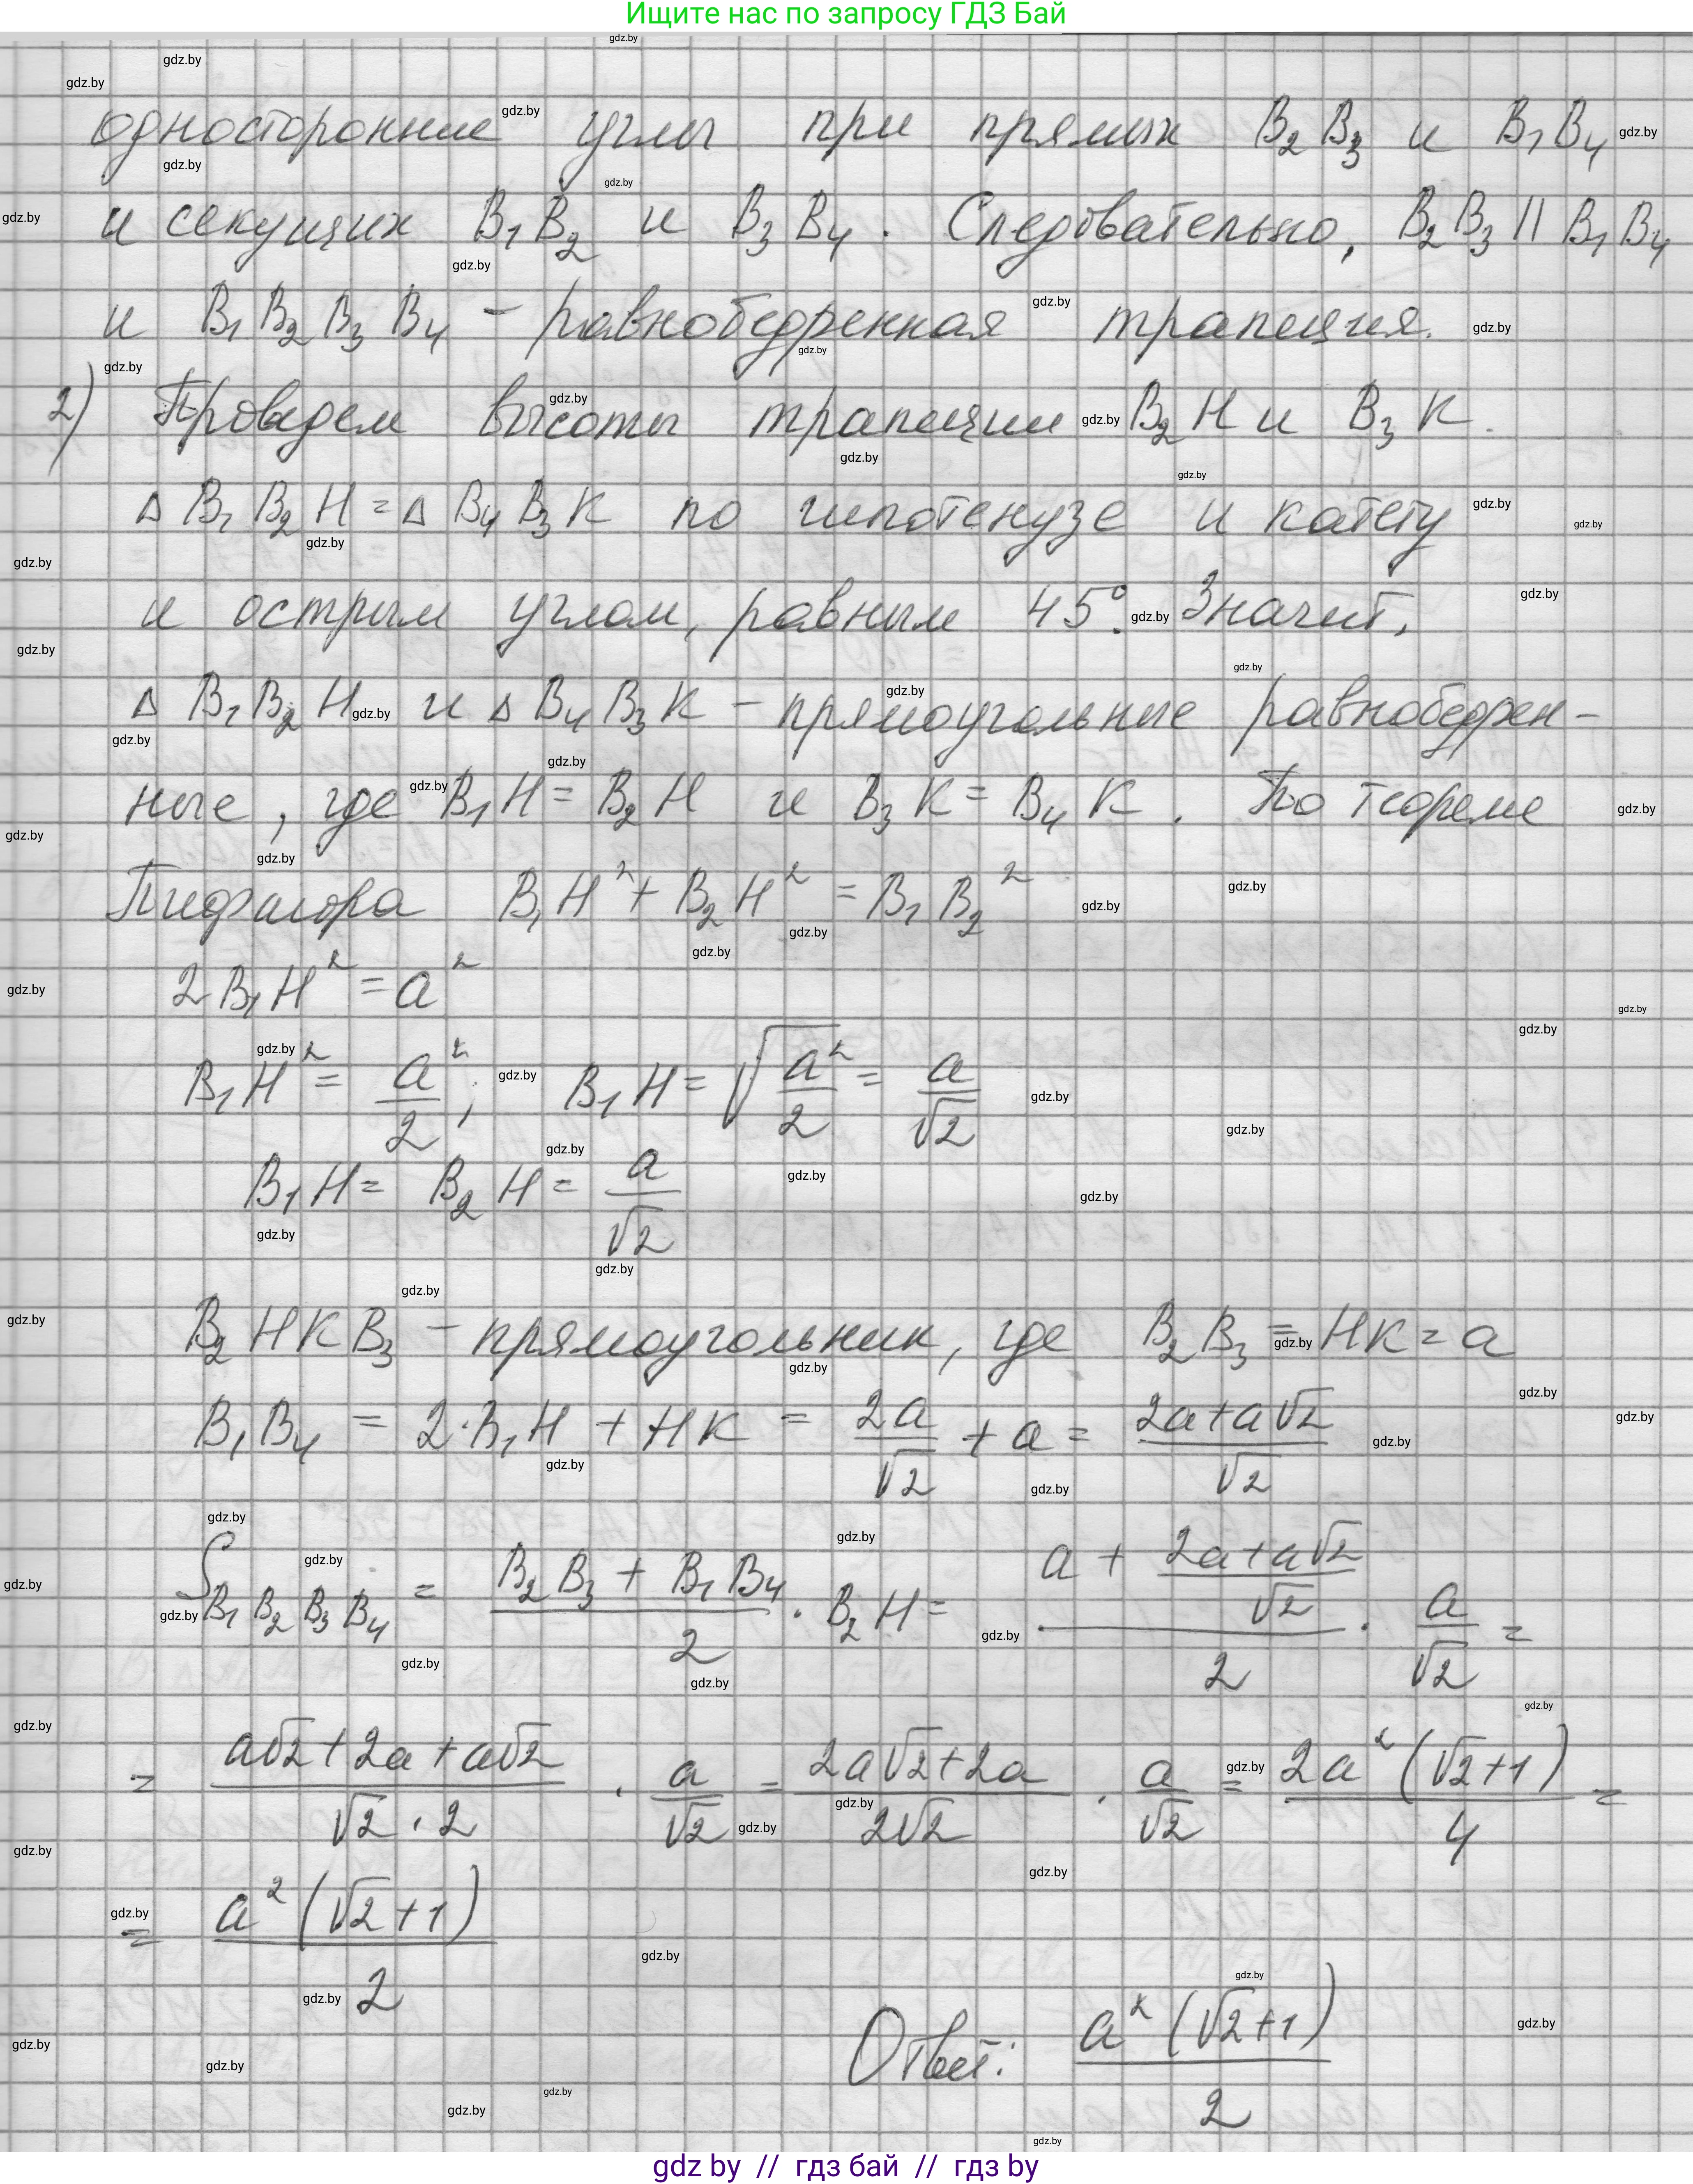 Ищите нас по запросу ГДЗ Бай
односторонние углы при прямых B₂B₃ и B₁B₄
и секущих B₁B₂ и B₃B₄. Следовательно, B₂B₃ || B₁B₄
и B₁B₂B₃B₄ – равнобедренная трапеция.
2) Проведем высоты трапеции B₂H и B₃K.
△ B₁B₂H = △ B₄B₃K по гипотенузе и катету
и острым углом, равным 45°. Значит,
△ B₁B₂H и △ B₄B₃K – прямоугольные равнобедрен-
ные, где B₁H = B₂H и B₃K = B₄K. По теореме
Пифагора B₁H² + B₂H² = B₁B₂²
2B₁H² = a²
B₁H² = a²/2; B₁H = √(a²/2) = a/√2
B₁H = B₂H = a/√2
B₂HKB₃ – прямоугольник, где B₂B₃ = HK = a
B₁B₄ = 2·B₁H + HK = 2a/√2 + a = (2a+a√2)/√2
S B₁B₂B₃B₄ = (B₂B₃ + B₁B₄)/2 · B₂H = (a + (2a+a√2)/√2)/2 · a/√2 =
= (a√2+2a+a√2)/(√2·2) · a/√2 = (2a√2+2a)/(2√2) · a/√2 = 2a²(√2+1)/4 =
= a²(√2+1)/2
Ответ: a²(√2+1)/2
gdz by // гдз бай // гдз by